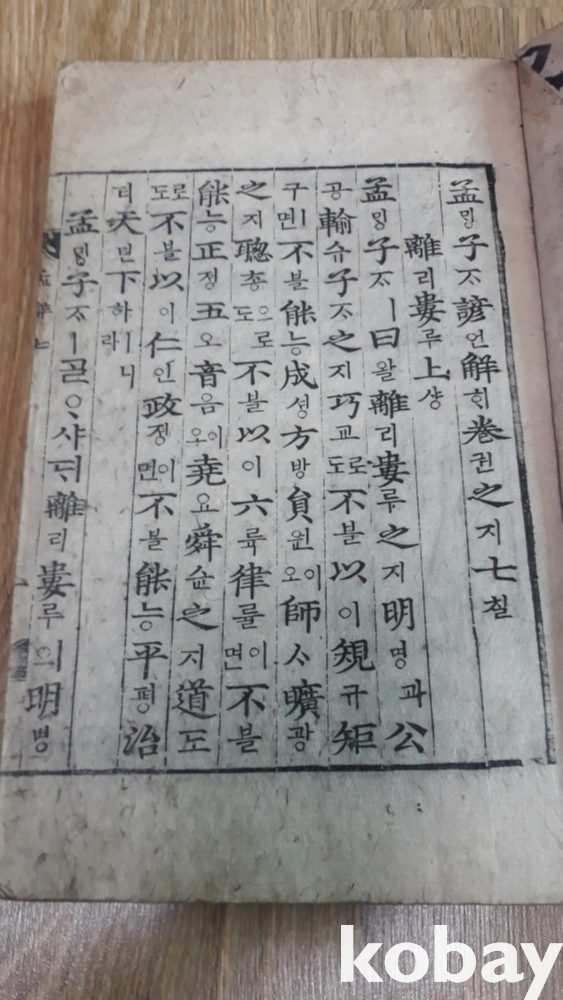 孟ᄆᆡᆼ子ᄌᆞ諺언解ᄒᆡ卷권之지七칠
離리婁루上샹
孟ᄆᆡᆼ子ᄌᆞㅣ曰왈離리婁루之지明명과公
공輸슈子ᄌᆞ之지巧교로도不불以이規규矩
구ㅣ면不불能능成셩方방員원이오師ᄉᆞ曠광
之지聰총으로도不불以이六륙律률이면不불
能능正졍五오音음이오堯요舜슌之지道도
로도不불以이仁인政졍이면不불能능平평治
티天텬下하ㅣ니라
孟ᄆᆡᆼ子ᄌᆞㅣᄀᆞᆯᄋᆞ샤ᄃᆡ離리婁루의明명
kobay